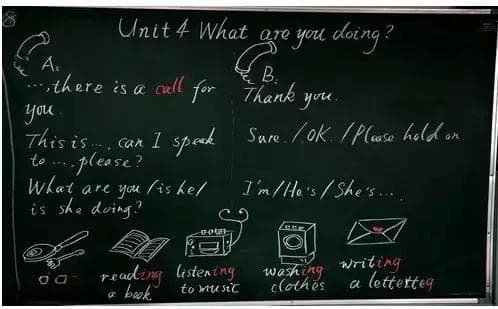 Unit 4 What are you doing?
A:
....there is a call for
you.
This is ..., can I speak
to ...., please?
What are you / is he /
is she doing?
B:
Thank you.
Sure. / OK. / Please hold on.
I'm / He's / She's ....
reading
a book
listening
to music
washing
clothes
writing
a letter